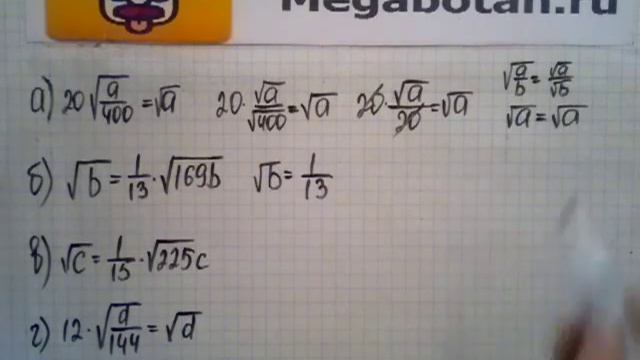 Megabotan.ru
а) 20√(a/400) = √a 20·√a/√400 = √a 20·√a/20 = √a √(a/b) = √a/√b
√a = √a
б) √b = 1/13·√169b √b = 1/13
в) √c = 1/15·√225c
г) 12·√(d/144) = √d